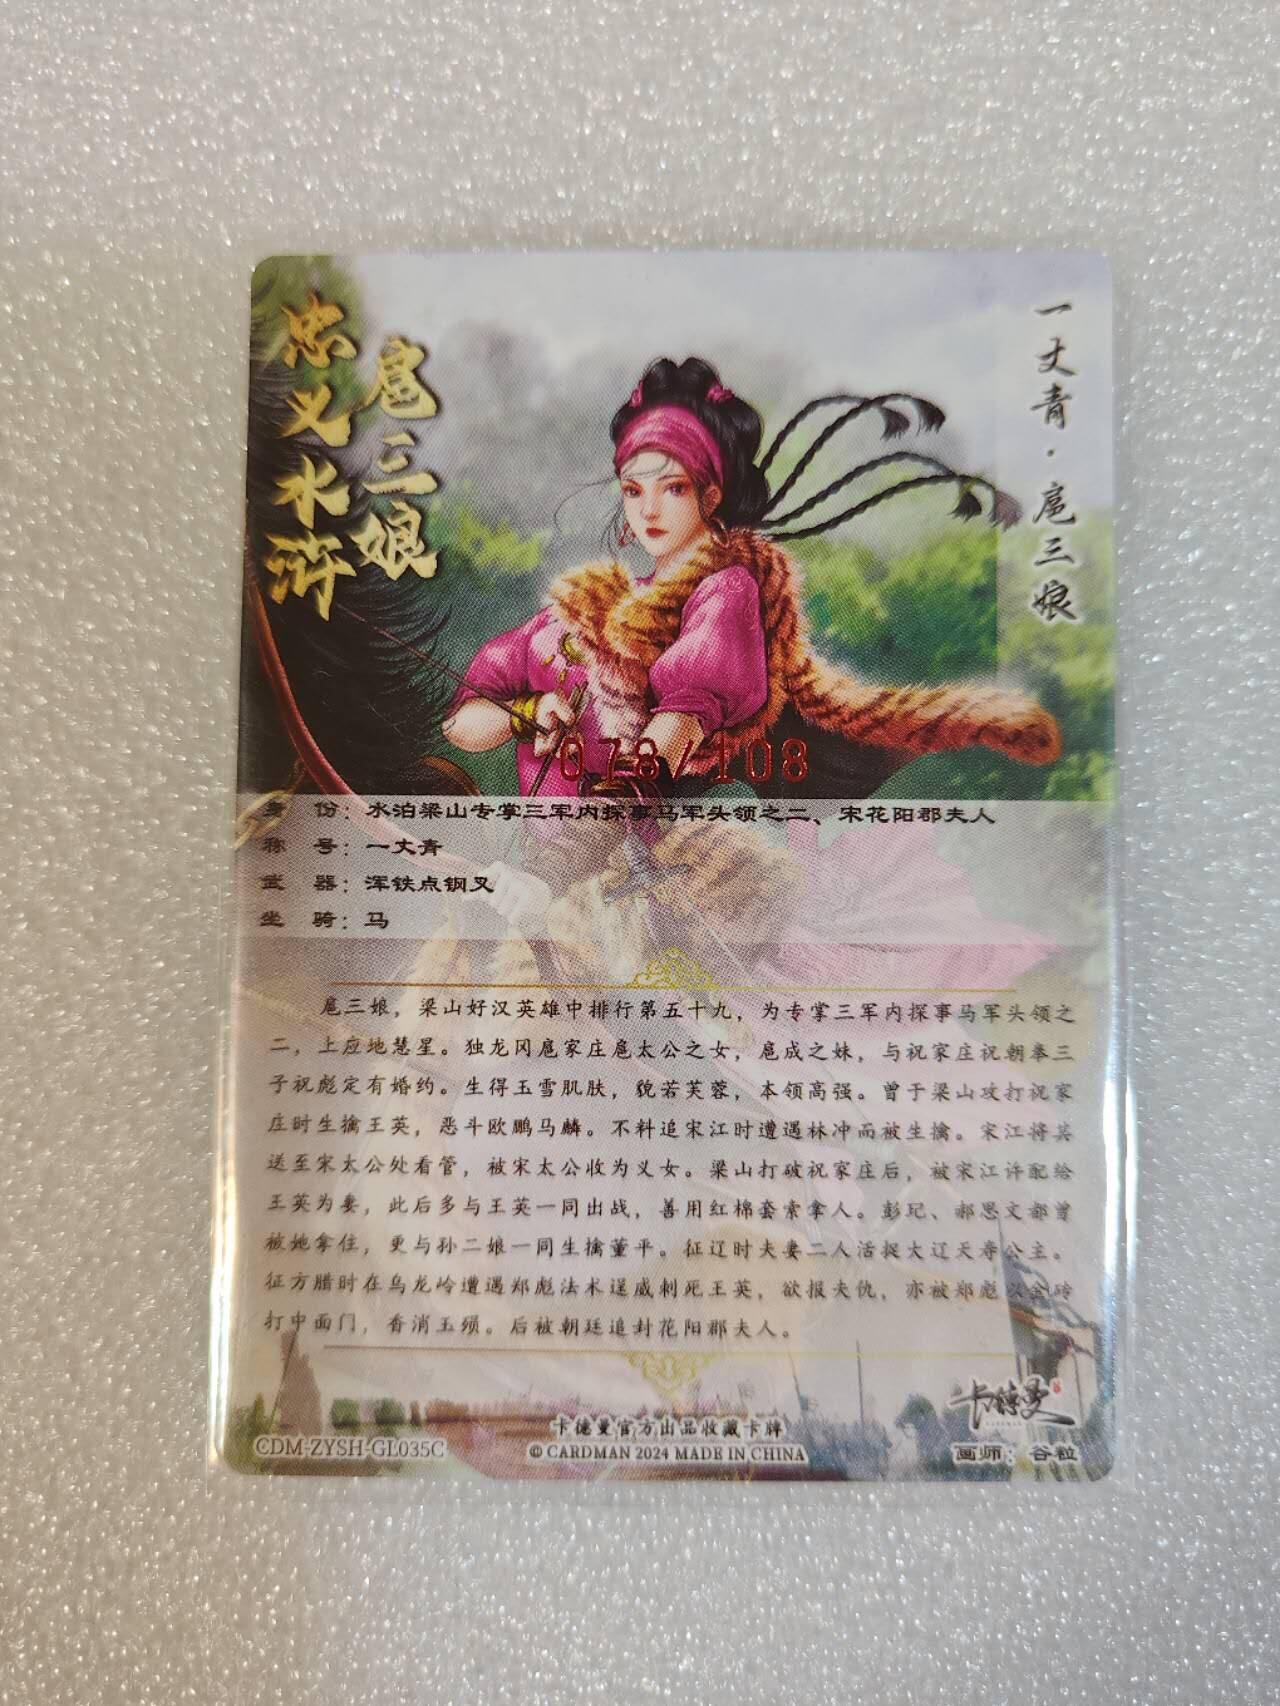 忠义水浒
扈三娘
一丈青·扈三娘
078/108
身 份：水泊梁山专掌三军内探事马军头领之二、宋花阳郡夫人
称 号：一丈青
武 器：浑铁点钢叉
坐 骑：马
扈三娘，梁山好汉英雄中排行第五十九，为专掌三军内探事马军头领之
二，上应地慧星。独龙冈扈家庄扈太公之女，扈成之妹，与祝家庄祝朝奉三
子祝彪定有婚约。生得玉雪肌肤，貌若芙蓉，本领高强。曾于梁山攻打祝家
庄时生擒王英，恶斗欧鹏马麟。不料追宋江时遭遇林冲而被生擒。宋江将其
送至宋太公处看管，被宋太公收为义女。梁山打破祝家庄后，被宋江许配给
王英为妻，此后多与王英一同出战，善用红棉套索拿人。彭玘、郝思文都曾
被她拿住，更与孙二娘一同生擒董平。征辽时夫妻二人活捉大辽天寿公主。
征方腊时在乌龙岭遭遇郑彪法术逞威刺死王英，欲报夫仇，亦被郑彪以金砖
打中面门，香消玉殒。后被朝廷追封花阳郡夫人。
卡德曼
卡德曼官方出品收藏卡牌
CDM-ZYSH-GL035C
© CARDMAN 2024 MADE IN CHINA
画师：谷粒